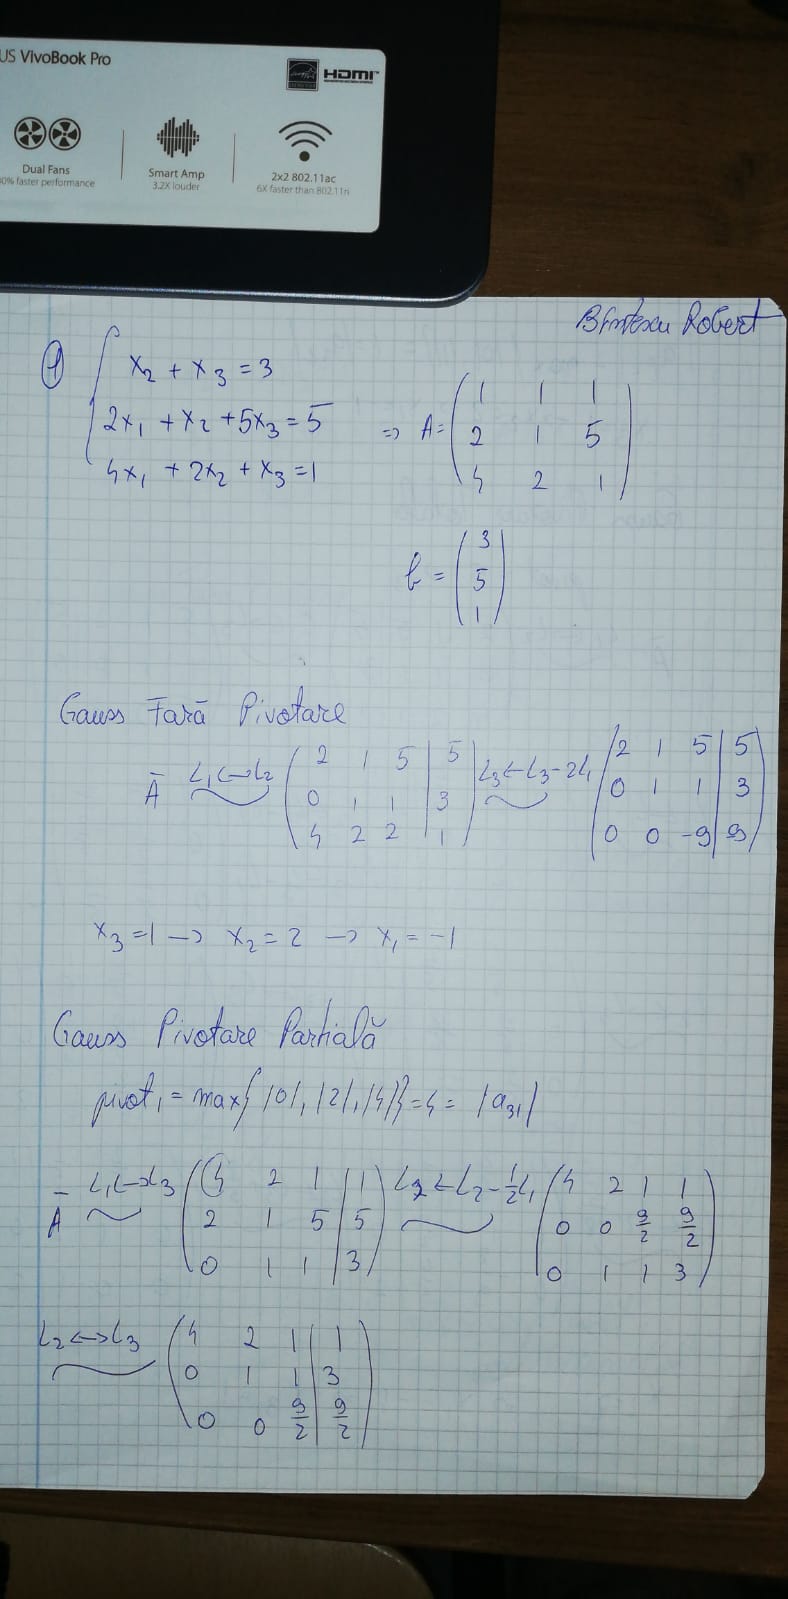 US VivoBook Pro
HDMI
Dual Fans
0% faster performance
Smart Amp
3.2X louder
2x2 802.11ac
6X faster than 802.11n
Robert
1
x₂ + x₃ = 3
2x₁ + x₂ + 5x₃ = 5
4x₁ + 2x₂ + x₃ = 1
=> A =
1 1 1
2 1 5
4 2 1
b =
3
5
1
Gauss Fară Pivotare
Ā L₁ <-> L₂
2 1 5 | 5
0 1 1 | 3
4 2 2 | 1
L₃ <- L₃ - 2L₁
2 1 5 | 5
0 1 1 | 3
0 0 -9 | 9
x₃ = 1 -> x₂ = 2 -> x₁ = -1
Gauss Pivotare Parțială
pivot₁ = max{|0|, |2|, |4|} = 4 = |a₃₁|
Ā L₁ <-> L₃
4 2 1 | 1
2 1 5 | 5
0 1 1 | 3
L₂ <- L₂ - 1/2 L₁
4 2 1 1
0 0 9/2 9/2
0 1 1 3
L₂ <-> L₃
4 2 1 | 1
0 1 1 | 3
0 0 9/2 | 9/2